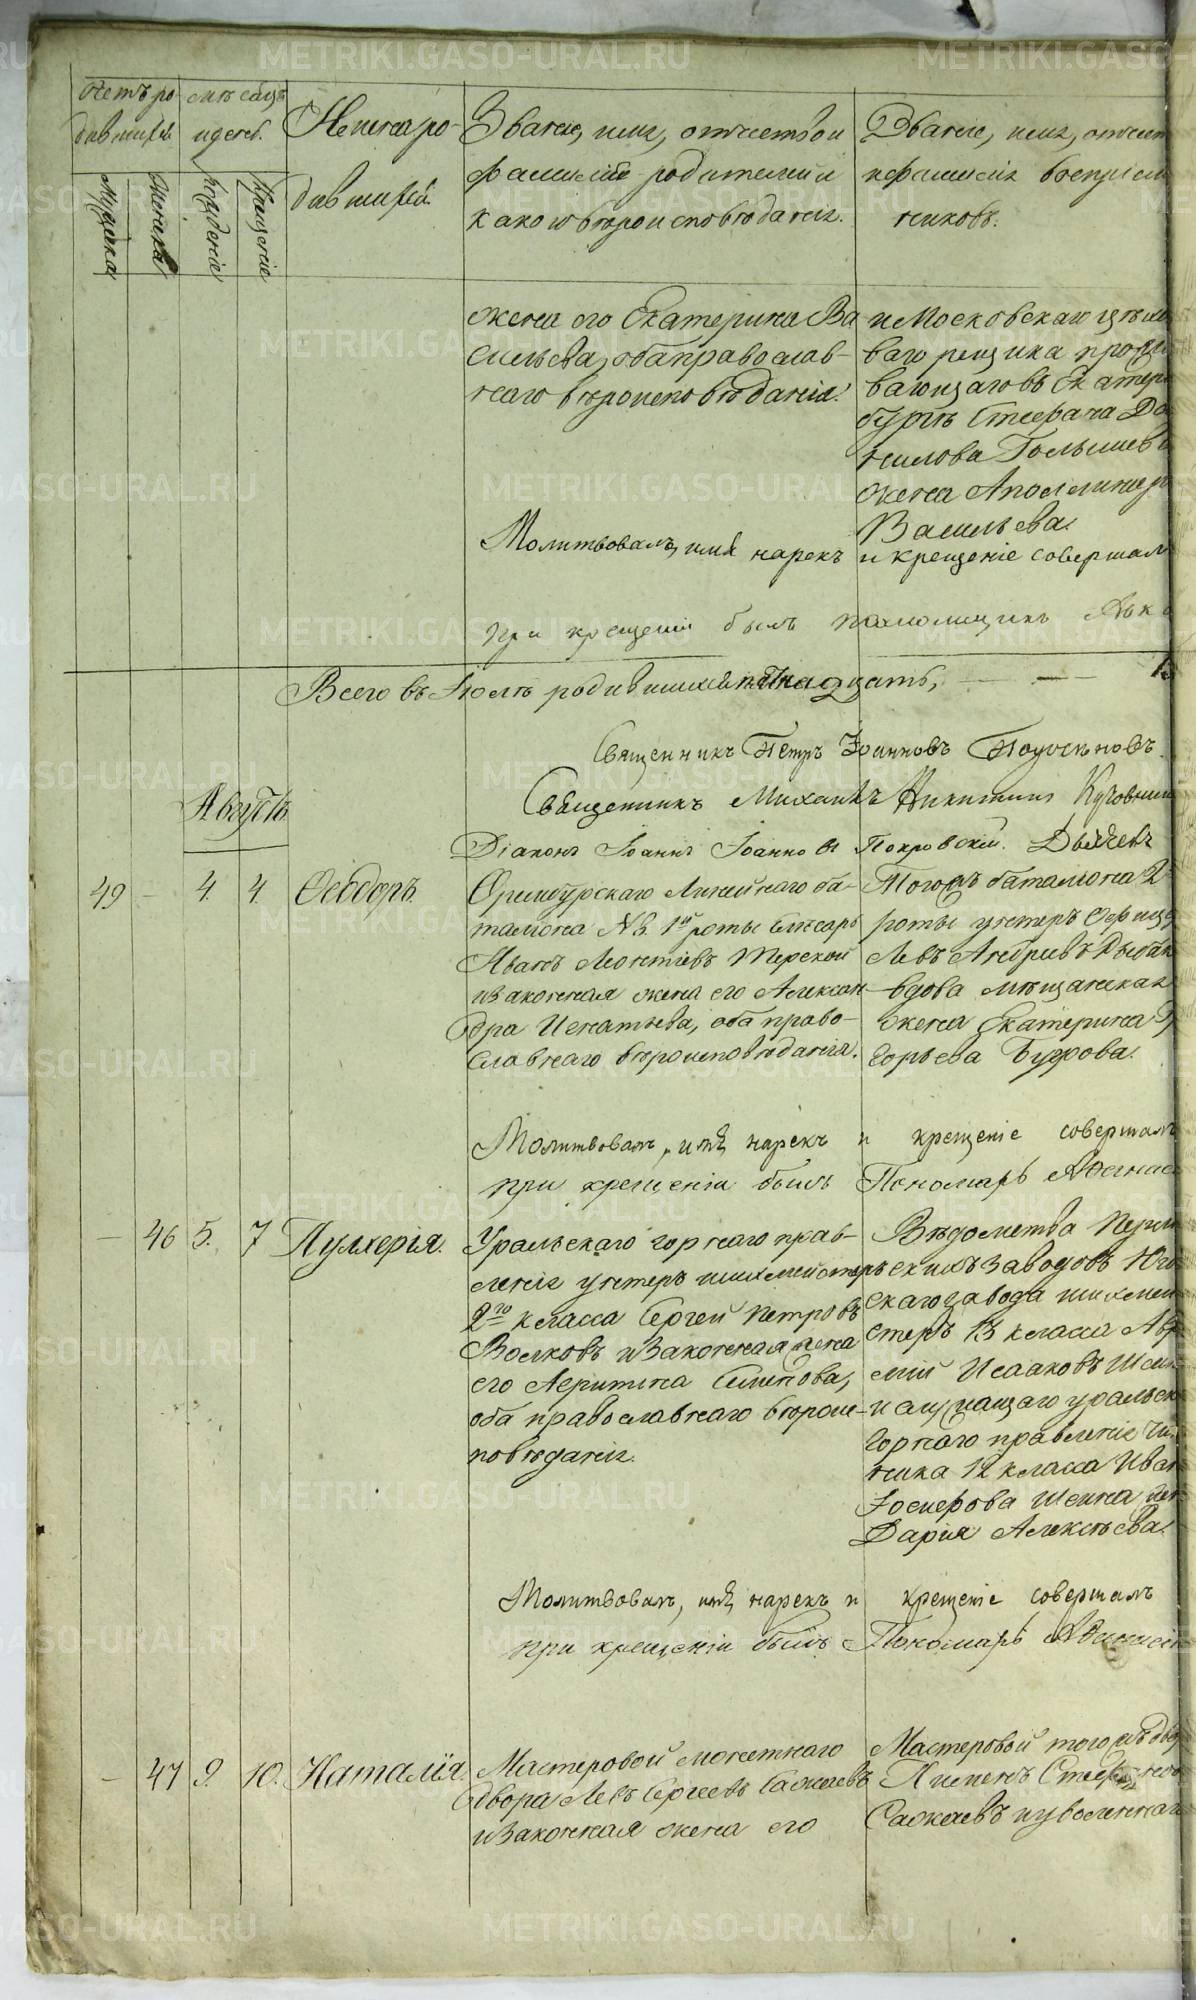 Счетъ ро
дившихся
Мужска
Женска
мѣсяцъ
и день.
рожденіе
крещеніе
Имена ро-
дившихся.
Званіе, имя, отчество и
фамилія родителей и
какого вѣроисповѣданія.
Званіе, имя, отчест
и фамилія воспріем
никовъ.
жена его Екатерина Ва
сильева, оба православ-
наго вѣроисповѣданія.
и Московскаго цѣхо
ваго рещика прожи
вающаго въ Екатери
бургѣ Стефана Да
нилова Голышева
жена Аполлинар
Васильева.
Молитвовалъ, имя нарекъ и крещеніе совершал
при крещеніи былъ
Всего въ Іюлѣ родившихся пятнадцать, — — 15
Священникъ Петръ Іоанновъ
Священникъ Михаилъ Никитинъ
Діаконъ Іоаннъ Іоанновъ Покровскій. Дьячевъ
Августъ
49 — 4. 4. Ѳеодоръ.
Оренбургскаго Линейнаго ба-
таліона №3. 1й роты слесарь
Иванъ Леонтіевъ Терской
и законная жена его Алексан
дра Игнатьева, оба право-
славнаго вѣроисповѣданія.
Того жъ баталіона 2
роты унтеръ офице
Левъ Андреевъ
вдова мѣщанская
жена Екатерина Г
горьева Бугрова.
Молитвовалъ, имя нарекъ и крещеніе совершалъ
при крещеніи былъ Пономарь Афанас
— 46 5. 7 Пулхерія.
Уральскаго горнаго прав-
ленія унтеръ шихмейстеръ
2го класса Сергей Петровъ
Волковъ и законная жена
его Агрипина Семенова,
оба православнаго вѣроис-
повѣданія.
Вѣдомства Перм
скихъ заводовъ Юго
скаго завода шихмей
стеръ 13 класса Ар
мій Исааковъ Шеин
и служащаго уральск
горнаго правленія чи
ника 12 класса Иван
Іосифова Шеина жен
Дарія Алексѣева.
Молитвовалъ, имя нарекъ и крещеніе совершалъ
при крещеніи былъ Пономарь Афанасі
— 47 9. 10. Наталія.
Мастеровой монетнаго
двора Левъ Сергеевъ Сажаевъ
и законная жена его
Мастеровой того жъ двор
Пименъ Стефанов
Сажаевъ и уволеннаго